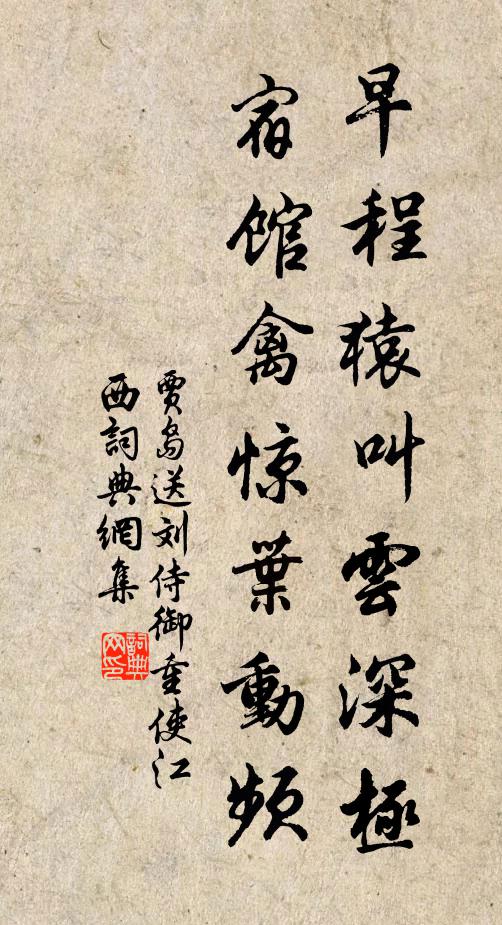 早程猿叫雲深極
宿館禽惊葉動頻
賈島送刘侍御重使江
西詞典網集
詞典网印